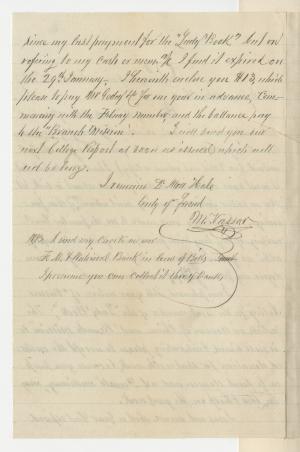 since my last payment for the "Lady's Book" but on
refering to my cash or mem: I find it expired on
the 29th January. I herewith enclose you $13, which
please to pay Mr Godey $3 for one year in advance, Com-
mencing with the Febuary number and the balance pay
to the "Branch Mission". I will send you our
next College Report as soon as issued, which will
not be long.
I remain Dr Mrs Hale
truly yr friend
M. Vassar
NB I send my check on our
F. M. National Bank in lieu of Bills
I presume you can collect it thro' yr Banks